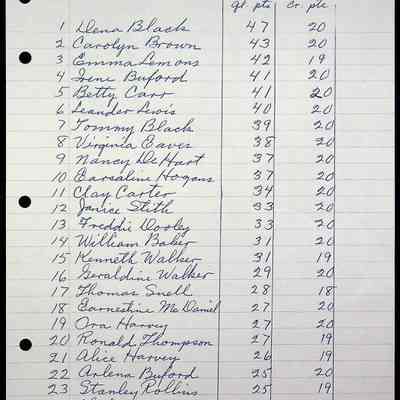 qt. pts Cr. pts
1 Dena Black 47 20
2 Carolyn Brown 43 20
3 Emma Lemons 42 19
4 Irene Buford 41 20
5 Betty Carr 41 20
6 Leander Lewis 40 20
7 Tommy Black 39 20
8 Virginia Eaves 38 20
9 Nancy DeHart 37 20
10 Earsaline Hogans 37 20
11 Clay Carter 34 20
12 Janice Stith 33 20
13 Freddie Dooley 33 20
14 William Baber 31 20
15 Kenneth Walker 31 19
16 Geraldine Walker 29 20
17 Thomas Snell 28 18
18 Earnestine McDaniel 27 20
19 Ora Harvey 27 20
20 Ronald Thompson 27 19
21 Alice Harvey 26 19
22 Arlena Buford 25 20
23 Stanley Rollins 25 19